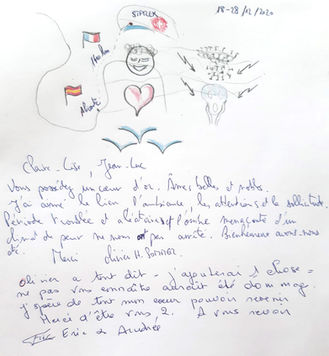 18-28/12/2020
SIPLEX
Claire-Lise, Jean-Luc
Vous possédez un cœur d'or. Âmes belles et nobles.
J'ai aimé le lien, l'ambiance, les attentions et la sollicitude.
Période troublée et aléatoire, l'ombre menaçante d'un
climat de peur ne nous ont pas arrêté. Bienheureux avons-nous
été. Merci Olivier H.
Olivier a tout dit - j'ajouterai 1 chose =
ne pas vous connaître aurait été dommage.
j'espère de tout mon cœur pouvoir revenir
Merci d'être vous 2. A vous revoir
Eric &